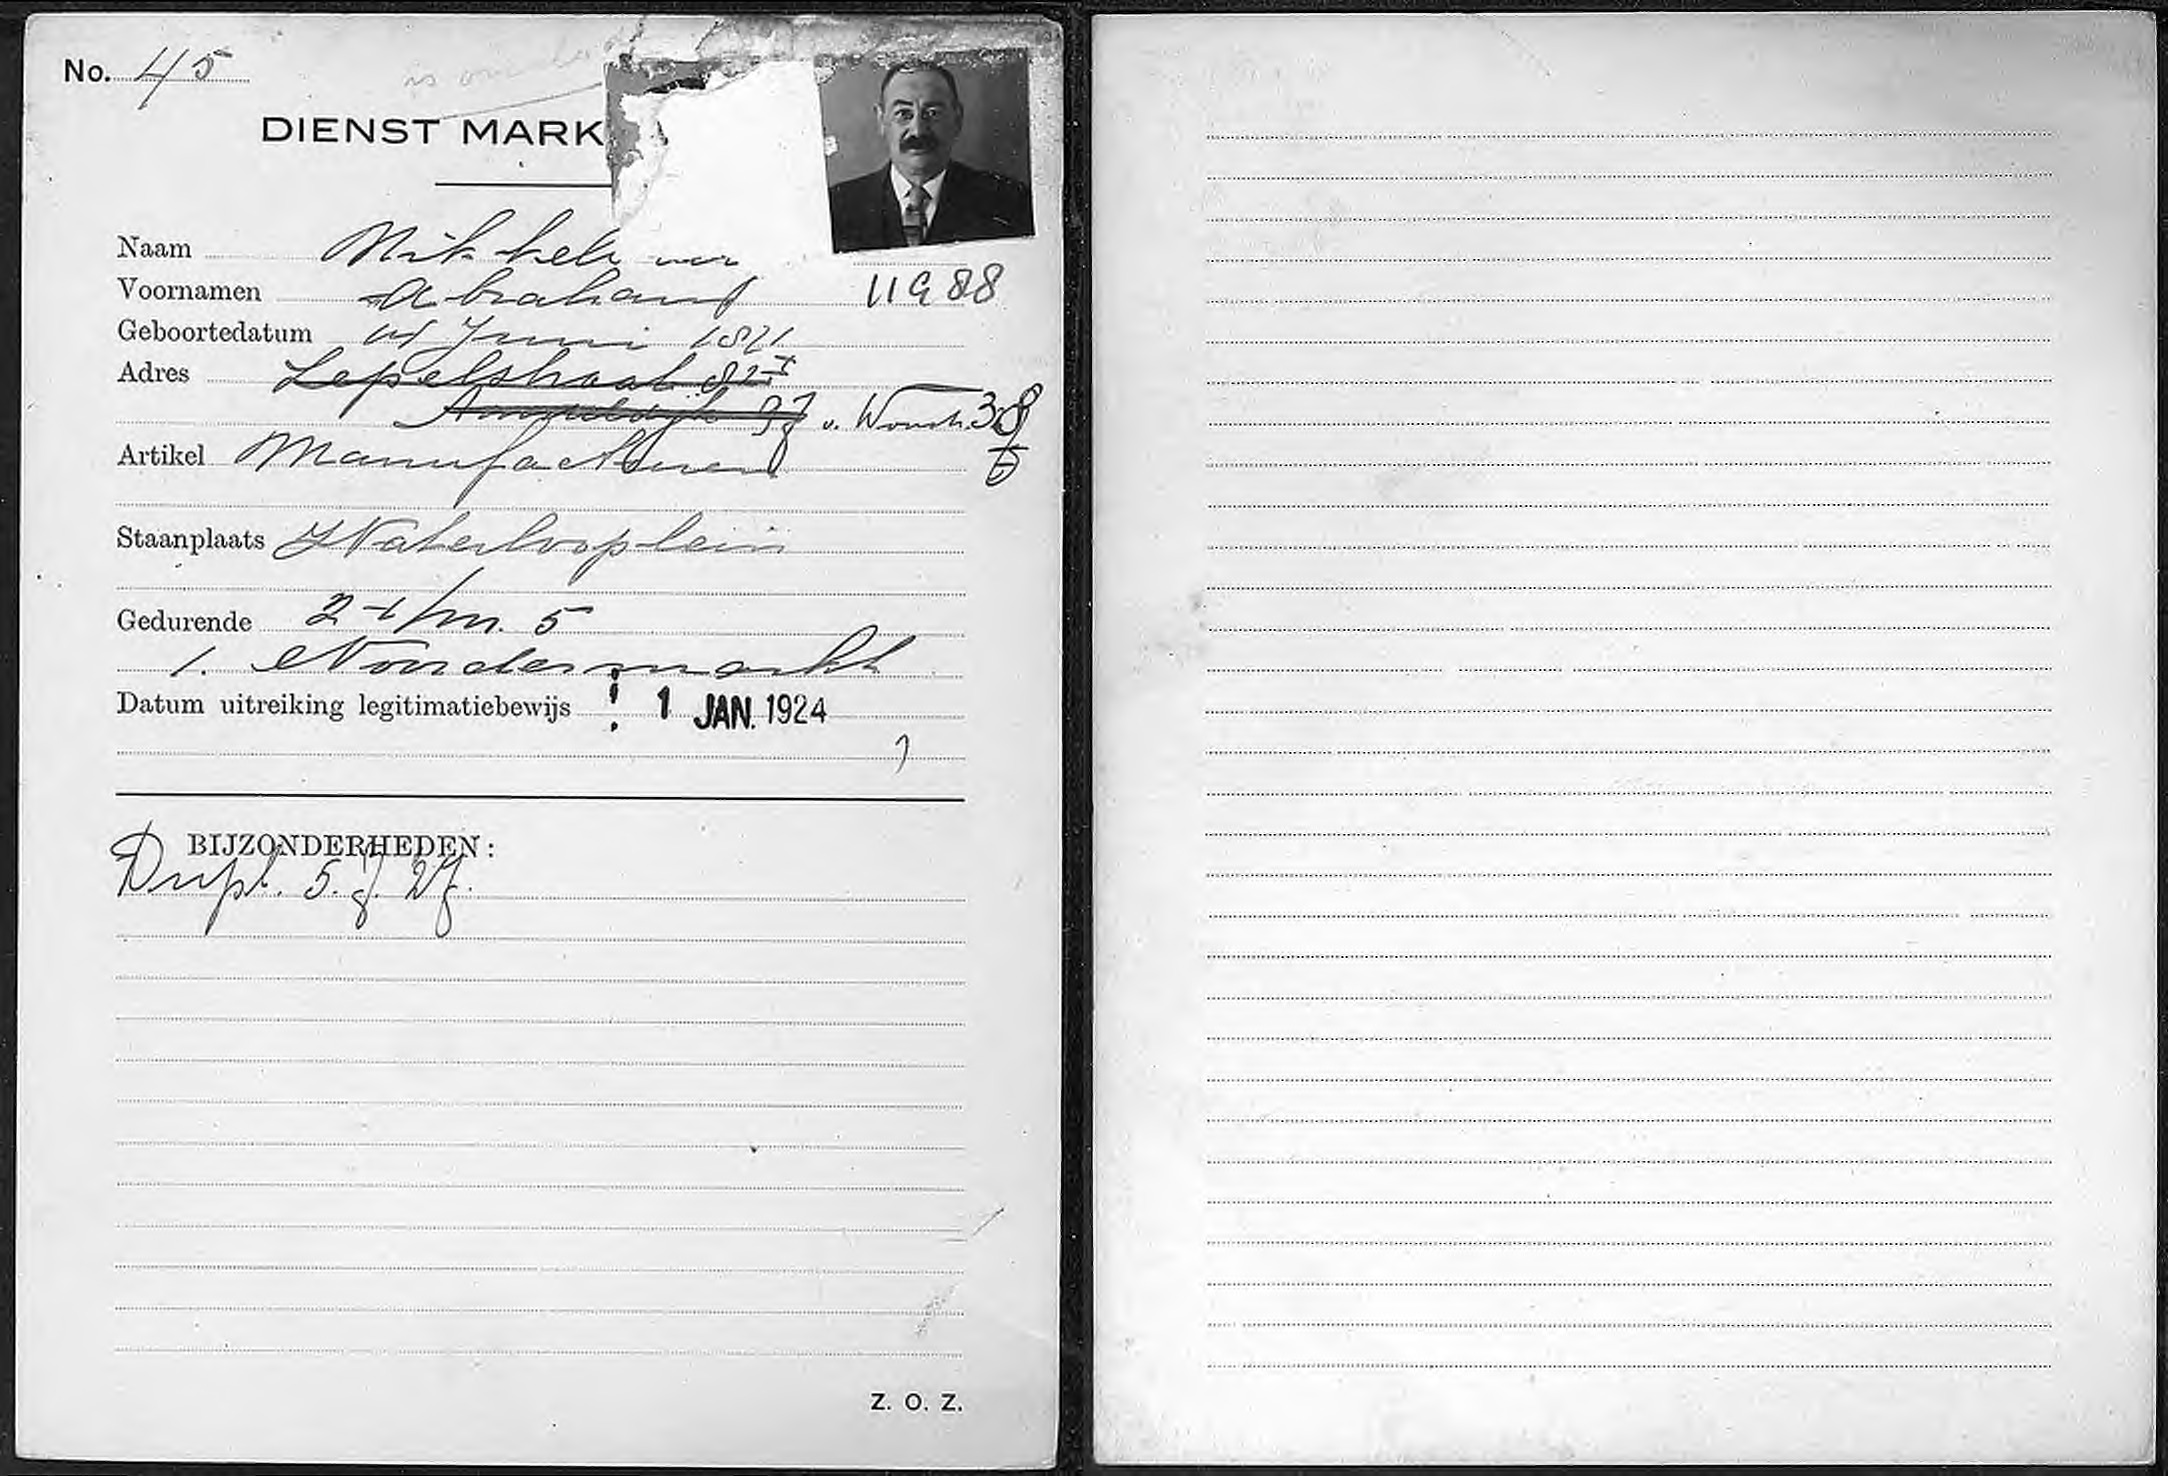 No. 45
is overleden
DIENST MARK
Naam
Voornamen Abraham
11988
Geboortedatum Juni 1871
Adres Lepelstraat 82 I
97 v. Woustr. 38
Artikel Manufacturen
Staanplaats Waterlooplein
Gedurende 2 t/m. 5
1. Noordermarkt
Datum uitreiking legitimatiebewijs 1 JAN. 1924
BIJZONDERHEDEN:
Dupl. 5. 8. 27.
Z. O. Z.